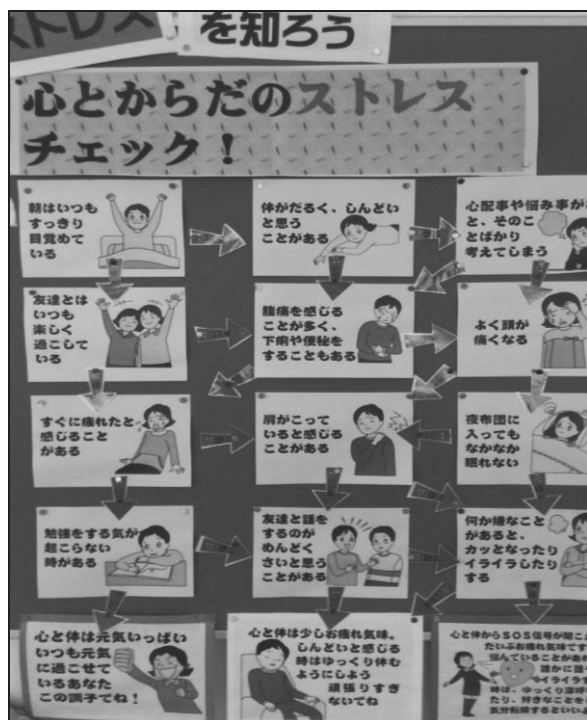 ストレス
を知ろう
心とからだのストレス
チェック！
朝はいつも
すっきり
目覚めて
いる
体がだるく、しんどい
と思う
ことがある
心配事や悩み事が
と、そのこ
とばかり
考えてしまう
友達とは
いつも
楽しく
過ごして
いる
腹痛を感じる
ことが多く、
下痢や便秘を
することもある
よく頭が
痛くなる
すぐに疲れたと
感じること
がある
肩がこって
いると感じる
ことがある
夜布団に
入っても
なかなか
眠れない
勉強をする気が
起こらない
時がある
友達と話を
するのが
めんどく
さいと思う
ことがある
何か嫌なこと
があると、
カッとなったり
イライラしたり
する
心と体は元気いっぱい
いつも元気
に過ごせて
いるあなた
この調子でね！
心と体は少しお疲れ気味。
しんどいと感じる
時はゆっくり休む
ようにしよう
頑張りすぎ
ないでね
心と体からSOS信号が聞こ
だいぶお疲れ気味です
悩んでいることがあれ
誰かに話
イライラす
時は、ゆっくり深呼
たり、好きなことの
気分転換するといい